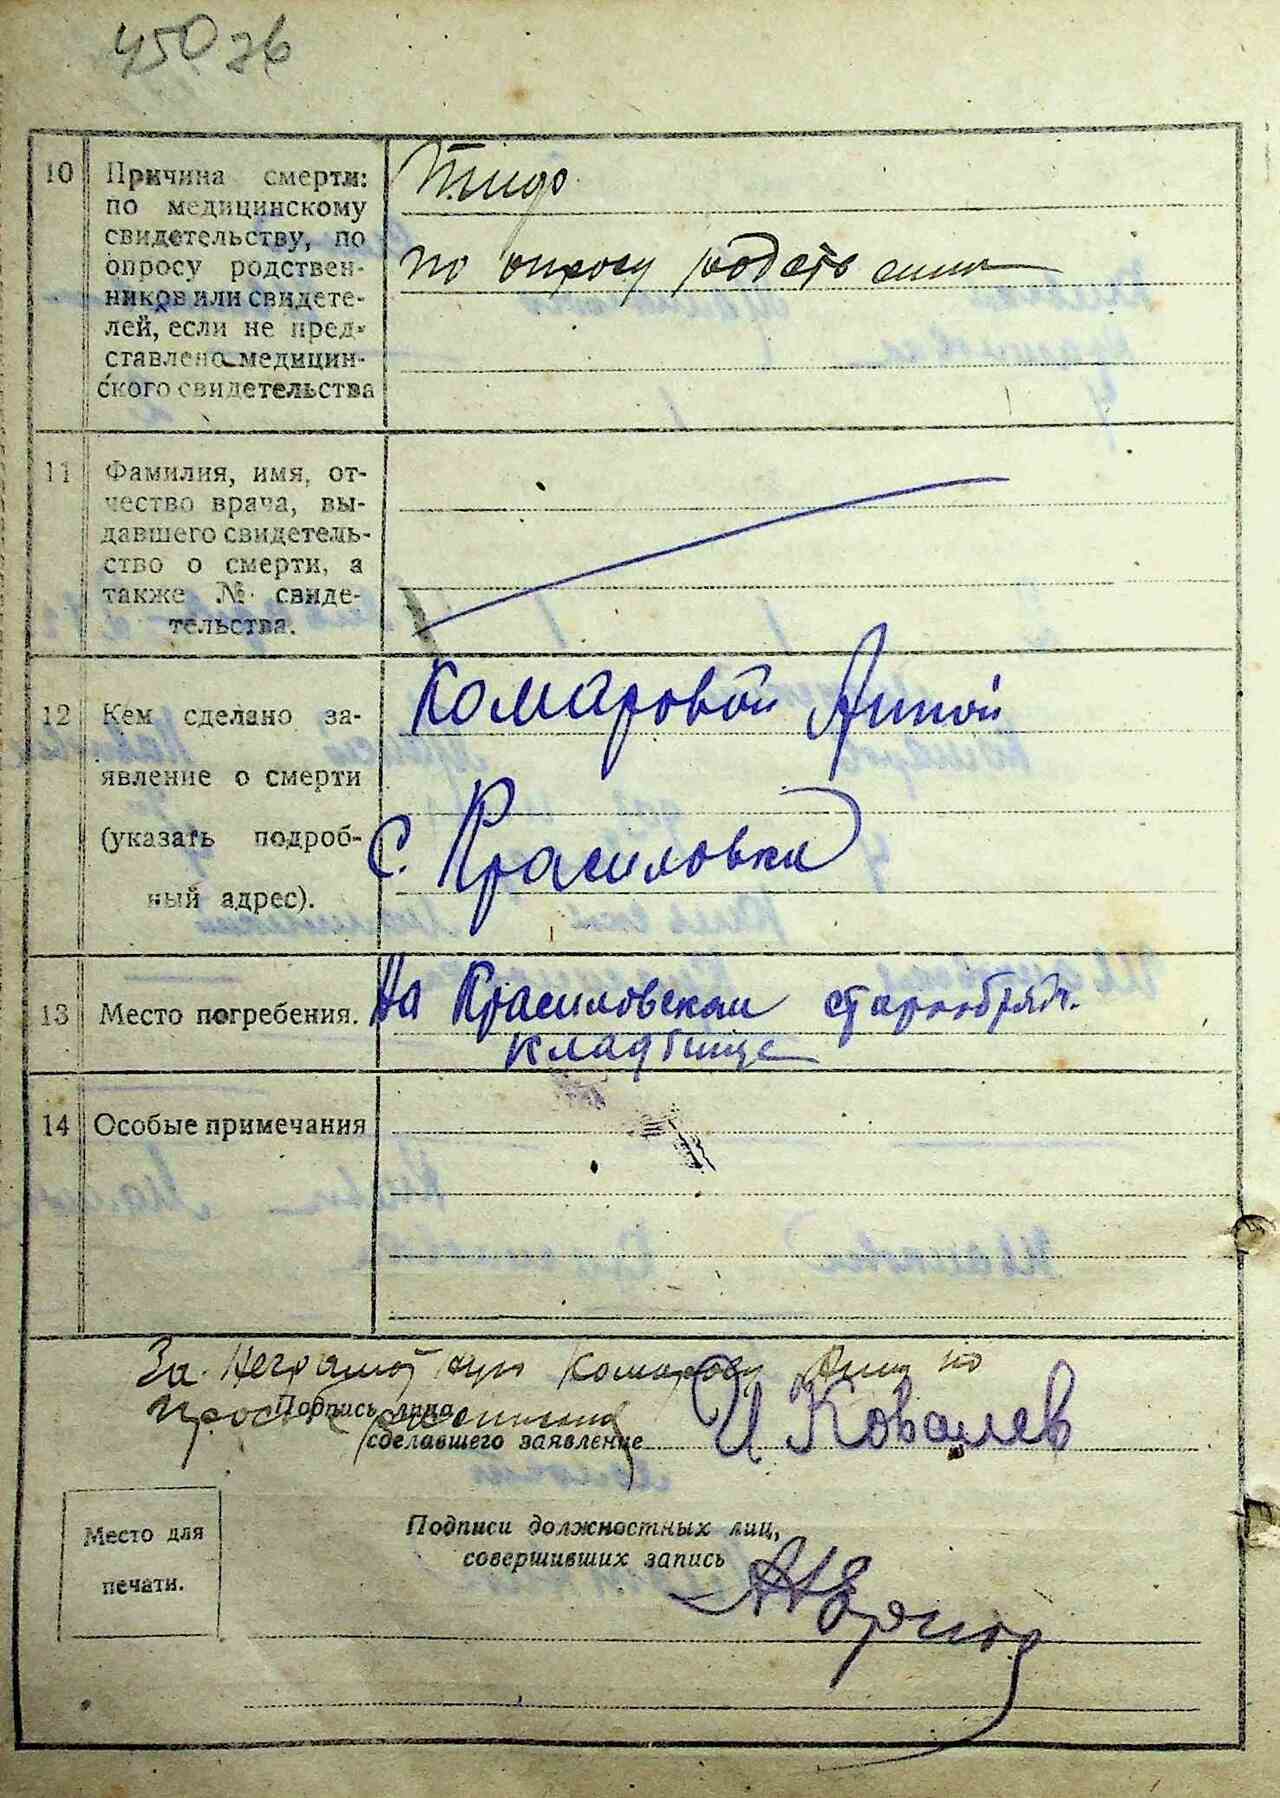 450 зв
10 Причина смерти:
по медицинскому
свидетельству, по
опросу родствен-
ников или свидете-
лей, если не пред-
ставлено медицин-
ского свидетельства
Тиф
по опросу родств
11 Фамилия, имя, от-
чество врача, вы-
давшего свидетель-
ство о смерти, а
также № свиде-
тельства.
12 Кем сделано за-
явление о смерти
(указать подроб-
ный адрес).
Комаровой Анной
с. Красиловка
13 Место погребения.
На Красиловском старообрядч.
кладбище
14 Особые примечания
За неграмотную Комарову Анну по
Подпись лица,
сделавшего заявление
И Ковалев
Место для
печати.
Подписи должностных лиц,
совершивших запись